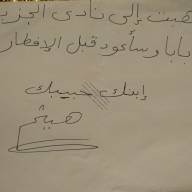 هبت إلى نادى الجزي
بابا وسأعود قبل الإفطار
إبنك حبيبك
هيثم